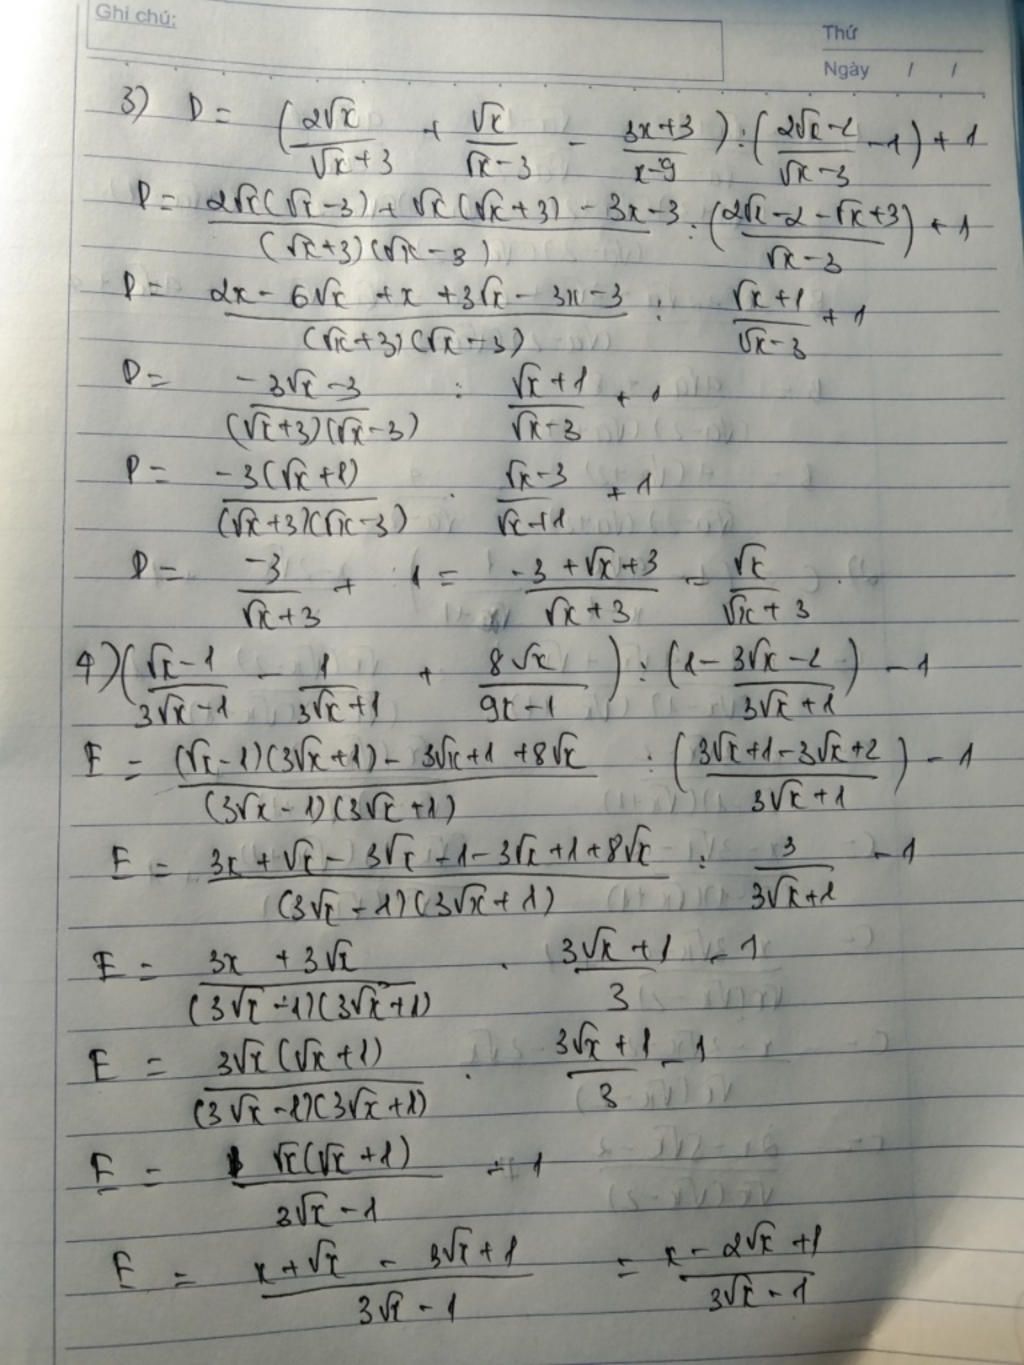 Ghi chú:
Thứ
Ngày / /
3) D = (2√x/(√x+3) + √x/(√x-3) - (3x+3)/(x-9)) : ((2√x-2)/(√x-3) - 1) + 1
D = (2√x(√x-3) + √x(√x+3) - 3x-3)/((√x+3)(√x-3)) : ((2√x-2-√x+3)/(√x-3)) + 1
D = (2x - 6√x + x + 3√x - 3x - 3)/((√x+3)(√x-3)) : (√x+1)/(√x-3) + 1
D = (-3√x-3)/((√x+3)(√x-3)) : (√x+1)/(√x-3) + 1
D = (-3(√x+1))/((√x+3)(√x-3)) . (√x-3)/(√x+1) + 1
D = -3/(√x+3) + 1 = (-3+√x+3)/(√x+3) = √x/(√x+3) .
4) ((√x-1)/(3√x-1) - 1/(3√x+1) + 8√x/(9x-1)) : (1 - (3√x-2)/(3√x+1)) - 1
E = ((√x-1)(3√x+1) - 3√x+1 + 8√x)/((3√x-1)(3√x+1)) : ((3√x+1-3√x+2)/(3√x+1)) - 1
E = (3x + √x - 3√x - 1 - 3√x + 1 + 8√x)/((3√x-1)(3√x+1)) : 3/(3√x+1) - 1
E = (3x + 3√x)/((3√x-1)(3√x+1)) . (3√x+1)/3 - 1
E = (3√x(√x+1))/((3√x-1)(3√x+1)) . (3√x+1)/3 - 1
E = (√x(√x+1))/(3√x-1) - 1
E = (x+√x - 3√x+1)/(3√x-1) = (x-2√x+1)/(3√x-1)